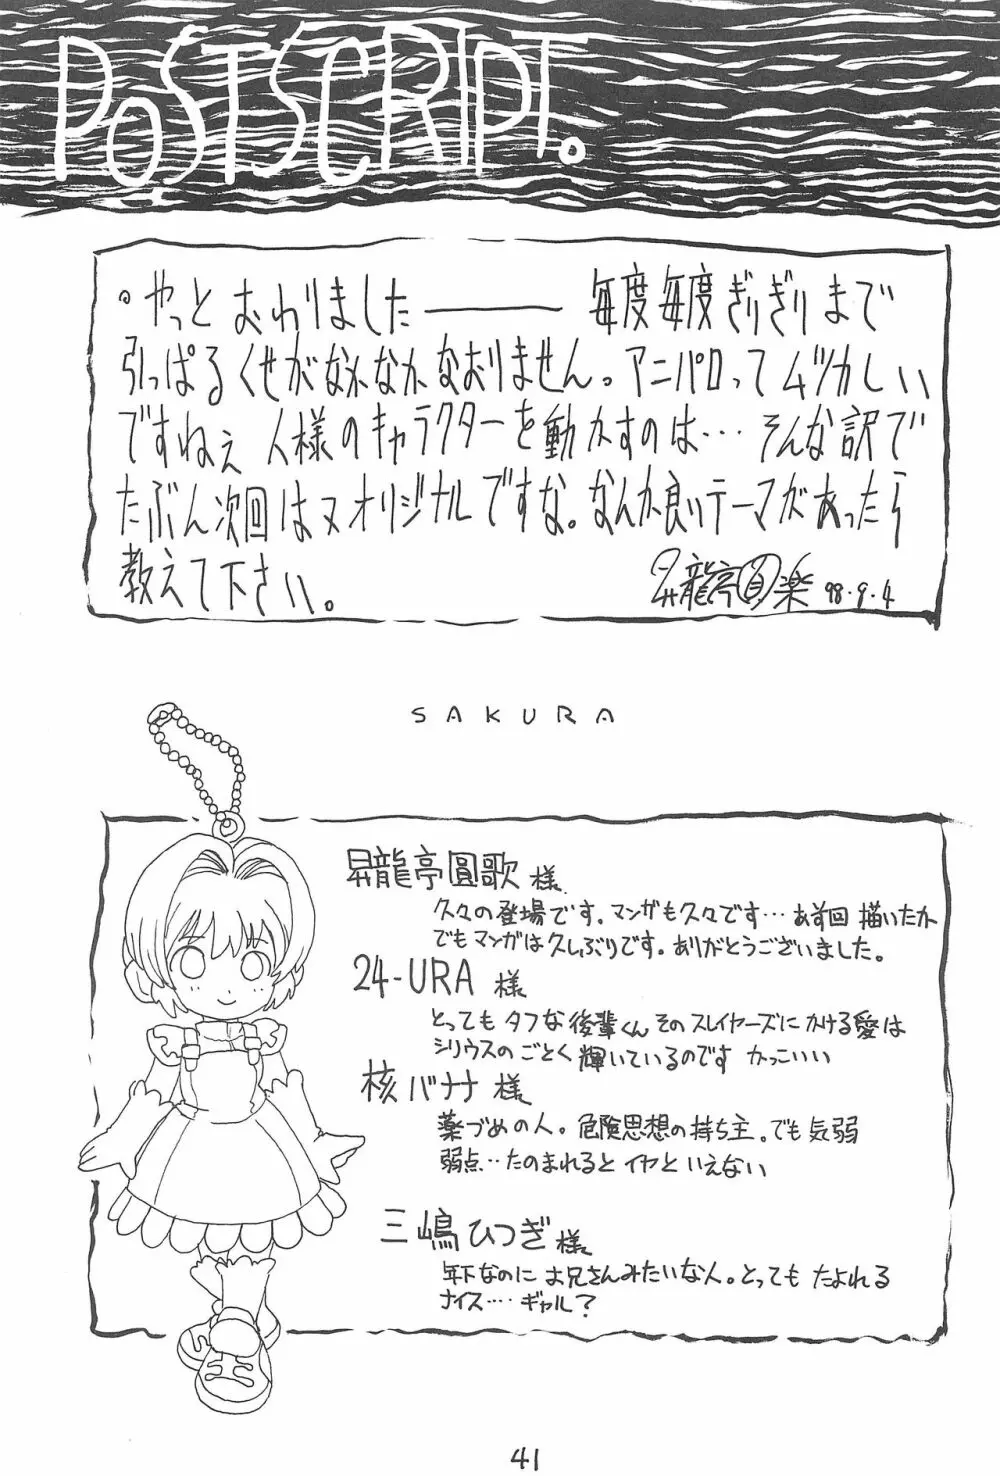 POSTSCRIPT.
・やっと おわりました―― 毎度毎度ぎりぎりまで
引っぱるくせがなかなかなおりません。アニパロってムヅカしい
ですねぇ 人様のキャラクターを動かすのは…そんな訳で
たぶん次回はヌオリジナルですな。なんか良いテーマがあったら
教えて下さい。
昇龍亭圓楽 98.9.4
SAKURA
昇龍亭圓歌 様
久々の登場です。マンガも久々です…あす回 描いたか
でもマンガは久しぶりです。ありがとうございました。
24-URA 様
とっても タフな後輩くん そのスレイヤーズに かける愛は
シリウスの ごとく 輝いているのです かっこいい
核バナナ 様
薬づめの人。危険思想の持ち主。でも 気弱
弱点…たのまれると イヤと いえない
三嶋ひつぎ 様
年下なのに お兄さんみたいな人。とっても たよれる
ナイス…ギャル?
41